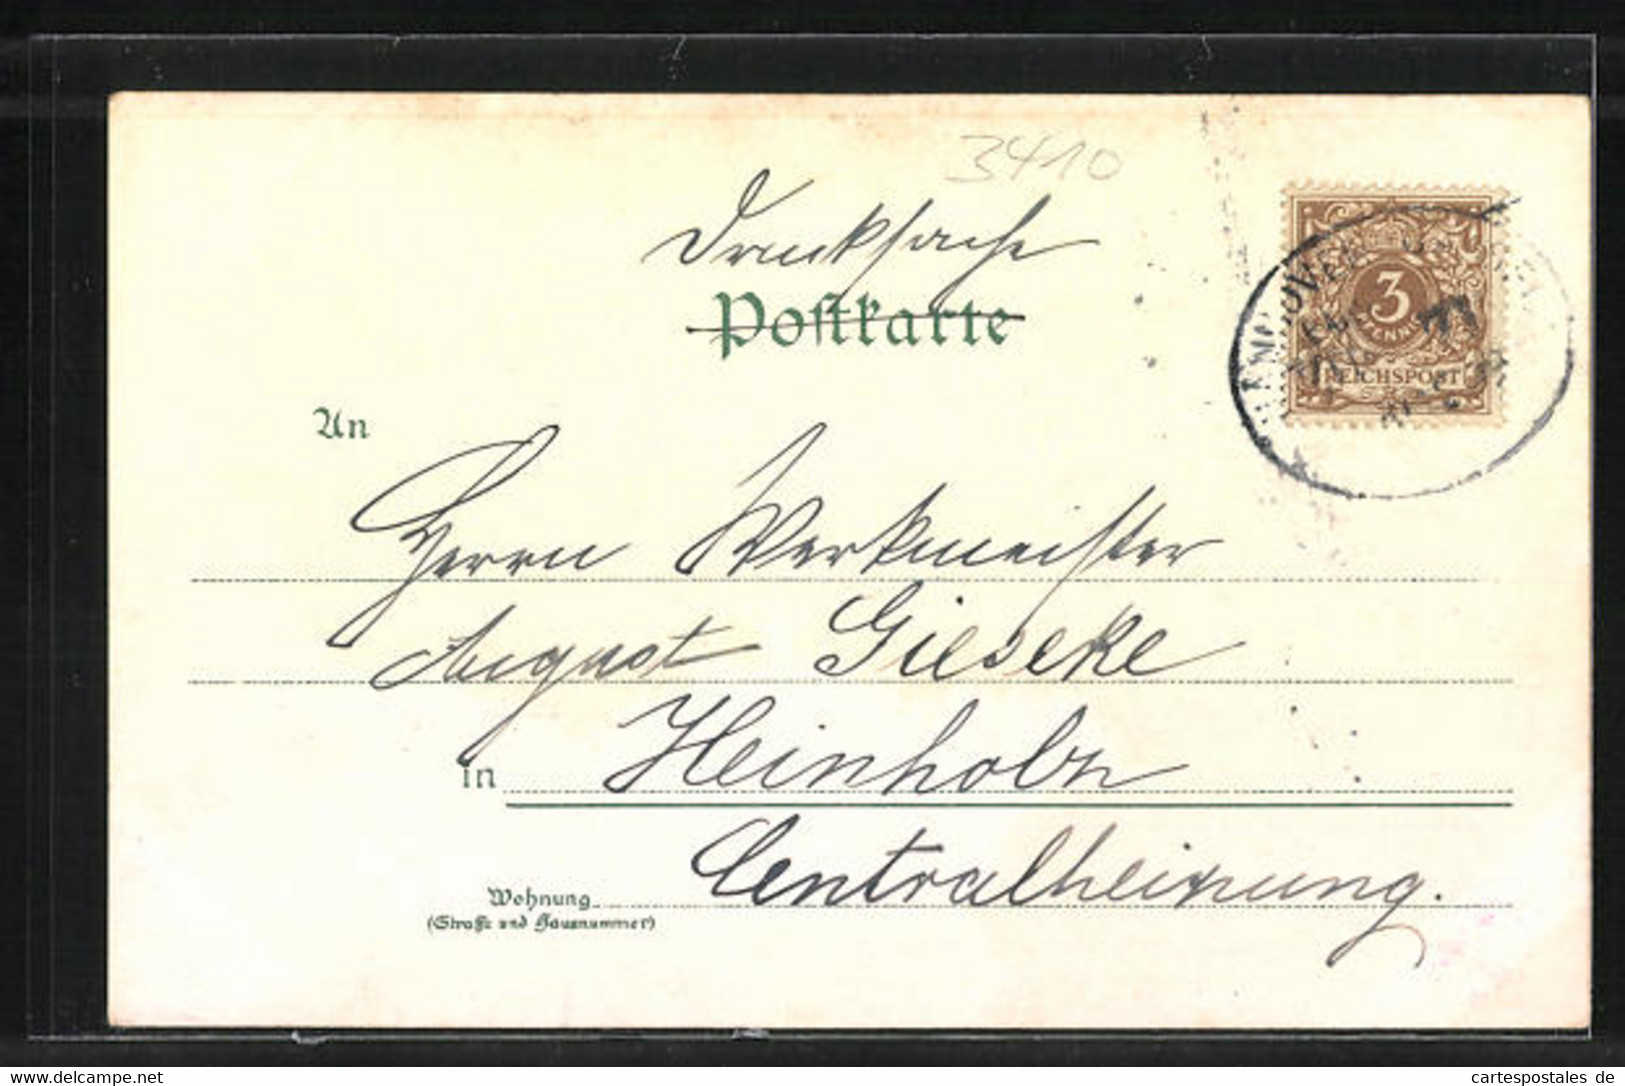 3410
Drucksache
Postkarte
3
PFENNIG
REICHSPOST
HANNOVER
An
Herrn Werkmeister
August Gieseke
in Heinholz
Centralheizung.
Wohnung
(Straße und Hausnummer)
Great deals on Delcampe.net
cartespostales de